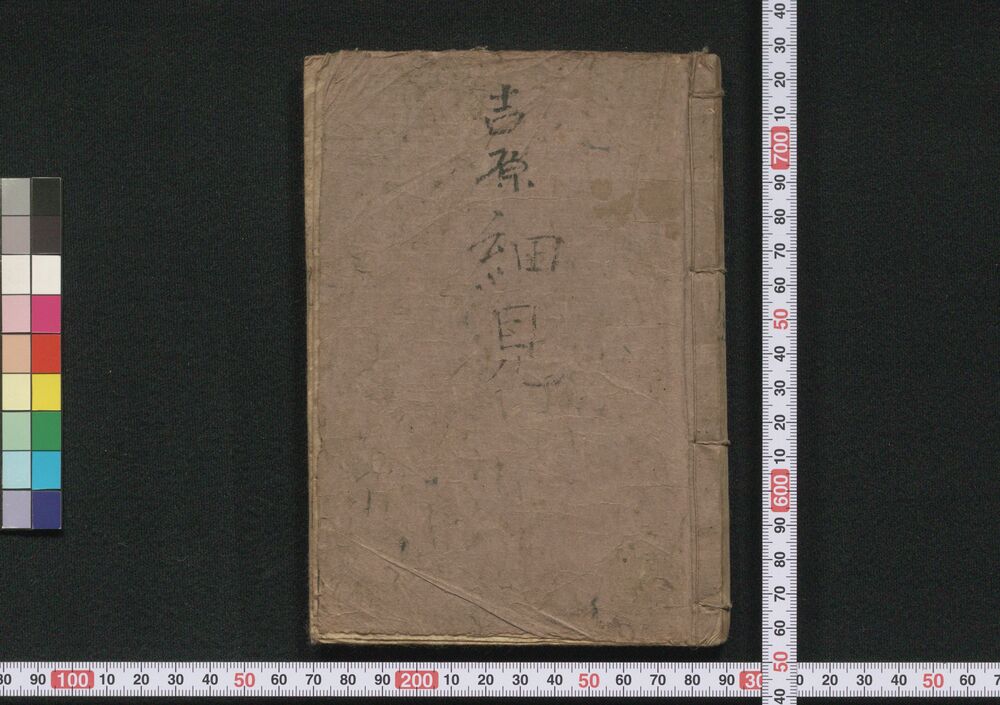 吉原細見
40
30
20
10
700
90
80
70
60
50
40
30
20
10
600
90
80
70
60
50
40
80 90 100 10 20 30 40 50 60 70 80 90 200 10 20 30 40 50 60 70 80 90 30 20 30 40 50 60 7